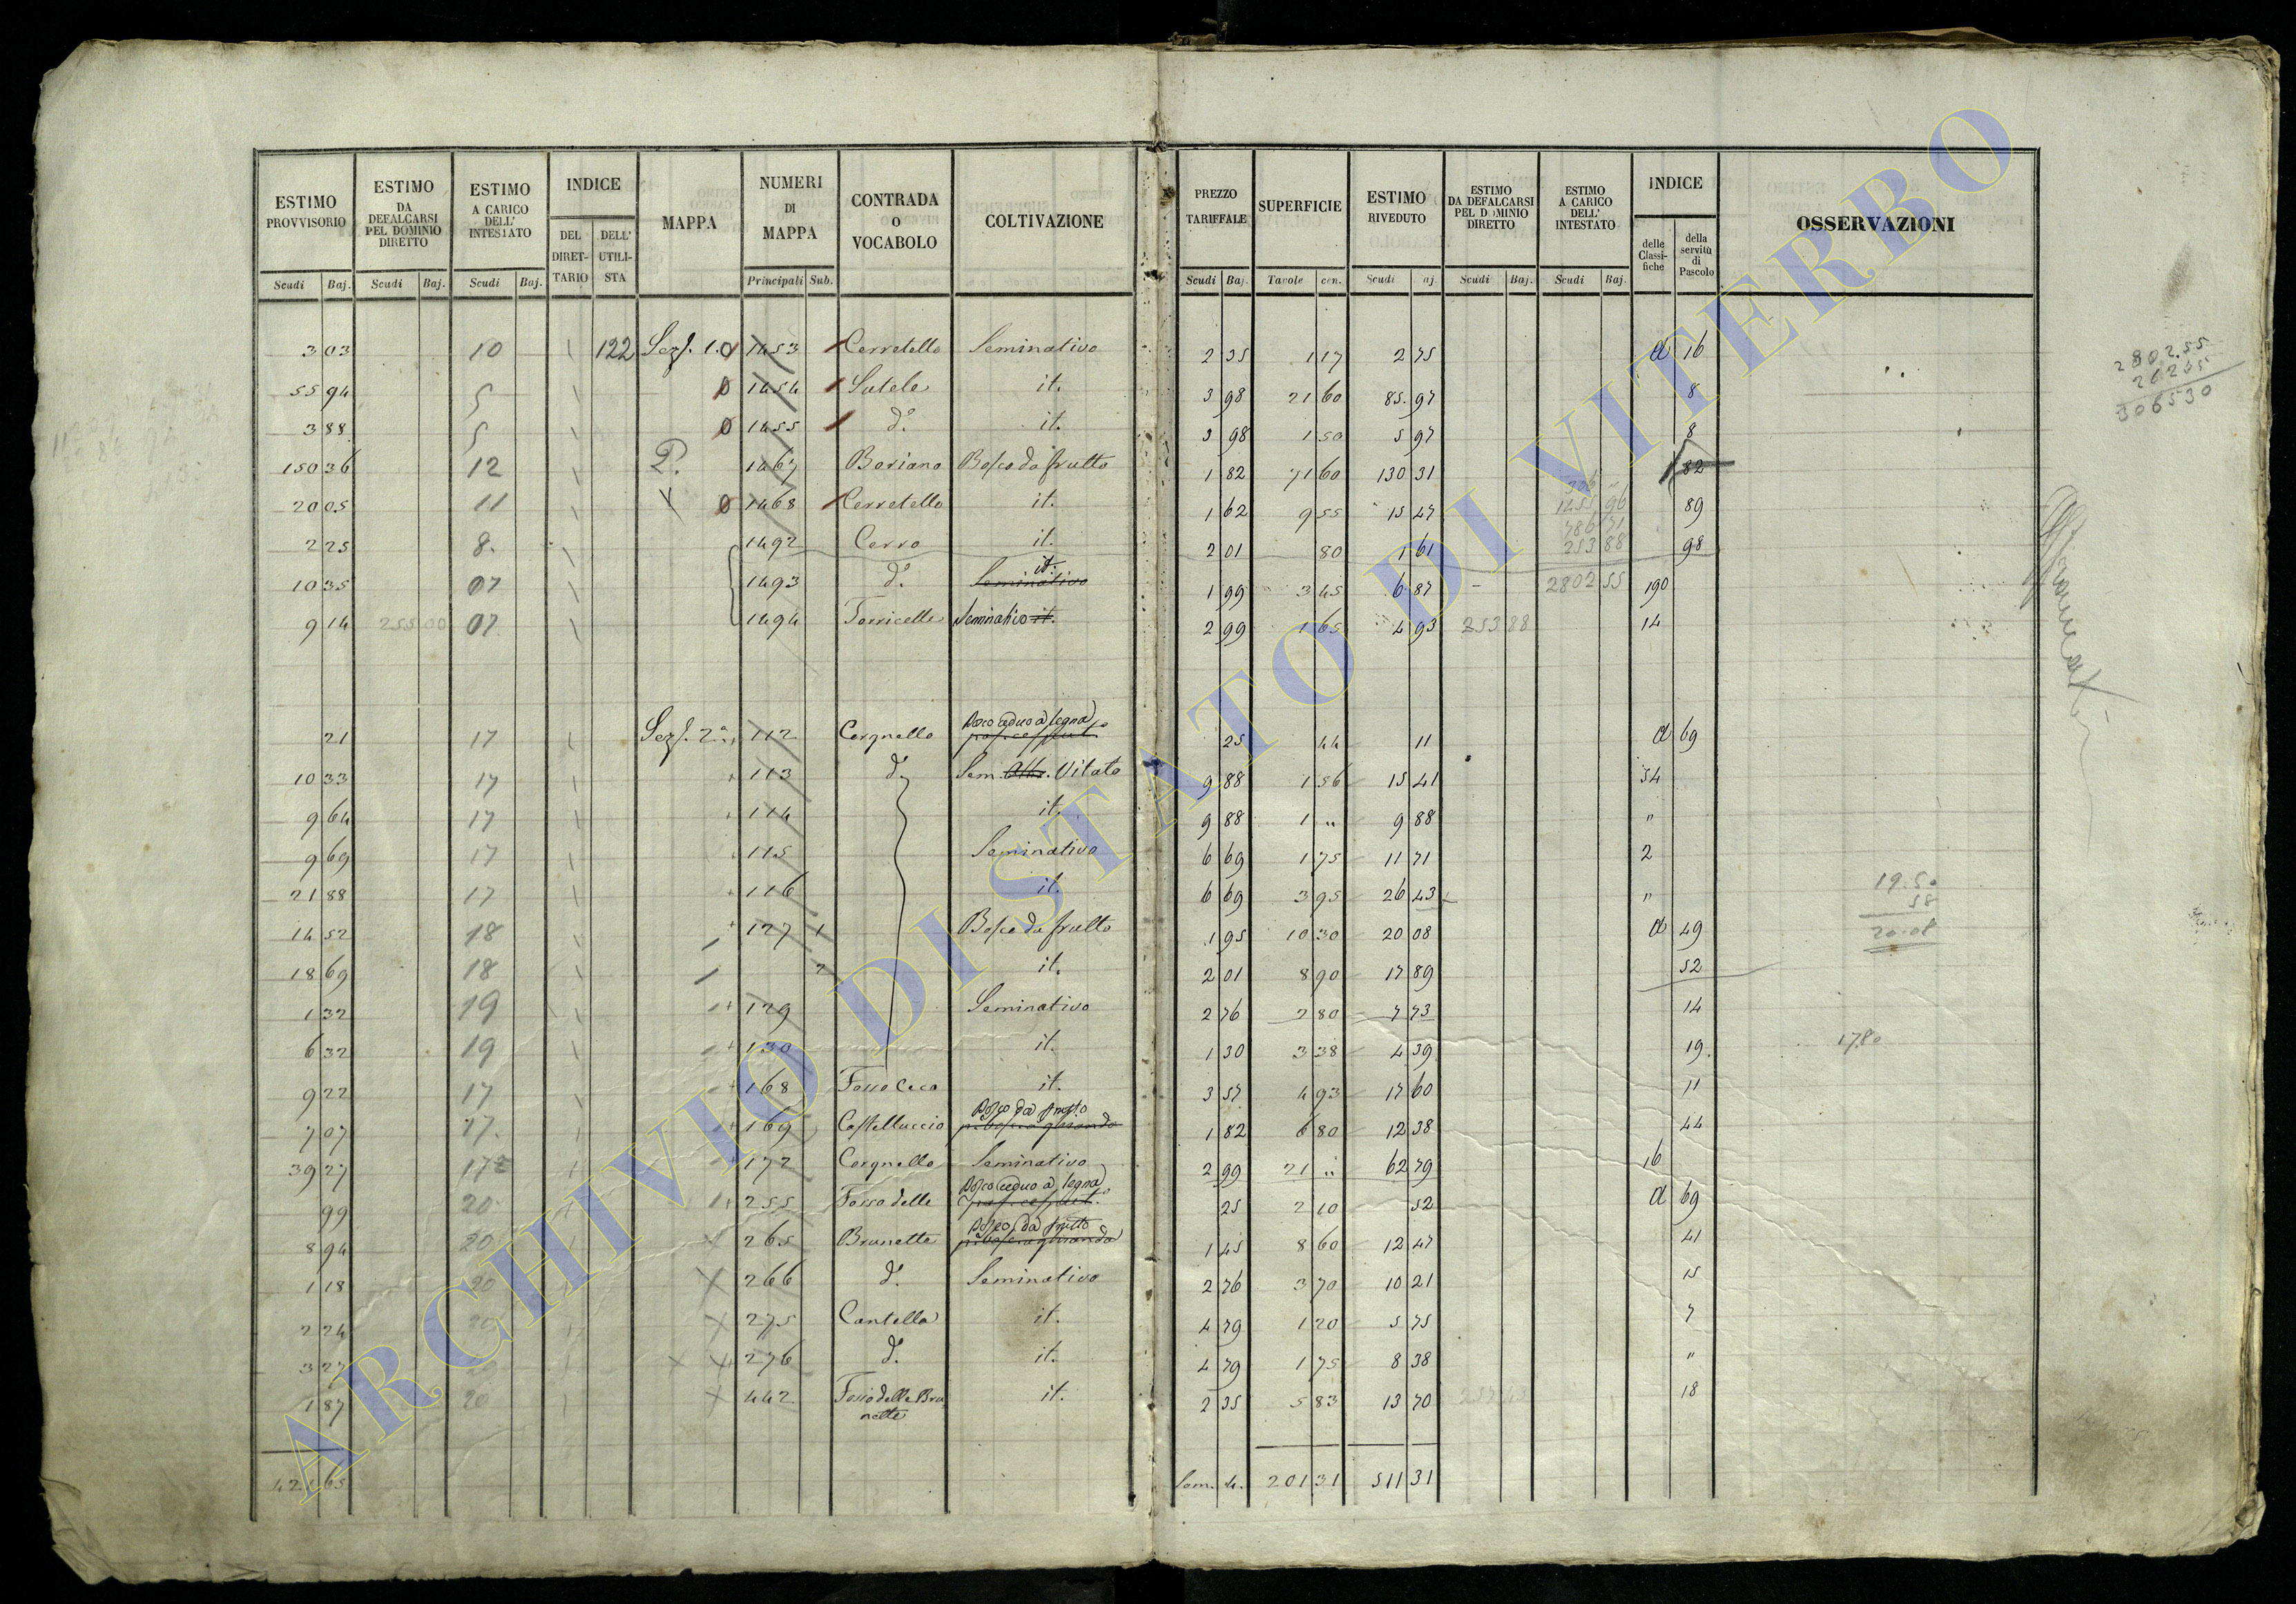 ESTIMO PROVVISORIO | ESTIMO DA DEFALCARSI PEL DOMINIO DIRETTO | ESTIMO A CARICO DELL' INTESTATO | INDICE | MAPPA | NUMERI DI MAPPA | CONTRADA O VOCABOLO | COLTIVAZIONE | PREZZO TARIFFALE | SUPERFICIE | ESTIMO RIVEDUTO | ESTIMO DA DEFALCARSI PEL DOMINIO DIRETTO | ESTIMO A CARICO DELL' INTESTATO | INDICE | OSSERVAZIONI
DEL DIRETTARIO | DELL' UTILISTA | delle Classifiche | della servitù di Pascolo
Scudi | Baj. | Scudi | Baj. | Scudi | Baj. | Principali | Sub. | Scudi | Baj. | Tavole | cen. | Scudi | aj. | Scudi | Baj. | Scudi | Baj.
3 03 | 10 | 122 | Sez. 1.a | 1453 | Cerretello | Seminativo | 2 35 | 1 17 | 2 75 | a | 16
55 94 | 5 | 0 | 1454 | Sutele | it. | 3 98 | 21 60 | 85 97 | 8
3 88 | 5 | 0 | 1455 | d.o | it. | 3 98 | 1 50 | 5 97 | 8
150 36 | 12 | 2. | 1467 | Boriano | Bosco da frutto | 1 82 | 71 60 | 130 31 | 82
20 05 | 11 | 0 | 1468 | Cerretello | it. | 1 62 | 9 55 | 15 47 | 89
2 25 | 8. | 1492 | Cerro | it. | 2 01 | 80 | 1 61 | 253 88 | 98
10 35 | 07 | 1493 | d.o | Seminativo it. | 1 99 | 3 45 | 6 87 | 2802 55 | 190
9 14 | 255 00 | 07 | 1494 | Torricelle | Seminativo it. | 2 99 | 1 65 | 4 93 | 253 88 | 14
21 | 17 | Sez. 2.a | 112 | Corgnello | Bosco ceduo a legna | 25 | 44 | 11 | a | 69
10 33 | 17 | 113 | d.o | Sem. Alb. Vitato | 9 88 | 1 56 | 15 41 | 34
9 64 | 17 | 114 | it. | 9 88 | 1 " | 9 88 | "
9 69 | 17 | 115 | Seminativo | 6 69 | 1 75 | 11 71 | 2
21 88 | 17 | 116 | it. | 6 69 | 3 95 | 26 43 | "
14 52 | 18 | 127 | 1 | Bosco da frutto | 1 95 | 10 30 | 20 08 | a | 49
18 69 | 18 | 2 | it. | 2 01 | 8 90 | 17 89 | 52
1 32 | 19 | 129 | Seminativo | 2 76 | 2 80 | 7 73 | 14
6 32 | 19 | 130 | it. | 1 30 | 3 38 | 4 39 | 19.
9 22 | 17 | 168 | Fosso Ceco | it. | 3 57 | 4 93 | 17 60 | 11
7 07 | 17. | 169 | Castelluccio | Bosco da frutto | 1 82 | 6 80 | 12 38 | 44
39 27 | 17 | 172 | Corgnello | Seminativo | 2 99 | 21 " | 62 79 | 16
99 | 20 | 255 | Fosso delle | Bosco ceduo a legna | 25 | 2 10 | 52 | a | 69
8 94 | 20 | 265 | Brunette | Bosco da frutto | 1 45 | 8 60 | 12 47 | 41
1 18 | 20 | 266 | d.o | Seminativo | 2 76 | 3 70 | 10 21 | 15
2 24 | 20 | 275 | Cantella | it. | 4 79 | 1 20 | 5 75 | 7
3 27 | 276 | d.o | it. | 4 79 | 1 75 | 8 38 | "
1 87 | 20 | 442 | Fosso delle Bru | it. | 2 35 | 5 83 | 13 70 | 18
nette
421 65 | Som. | 201 31 | 511 31
2802.55
262 75
3065 30
19.50
58
20.08
17.80
ARCHIVIO DI STATO DI VITERBO